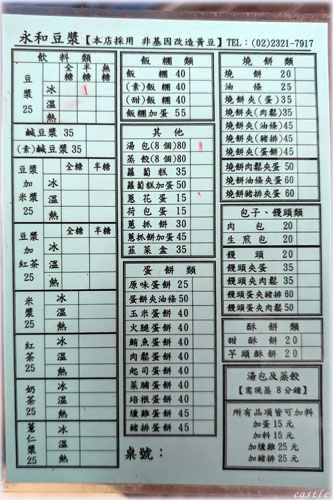 永和豆漿【本店採用 非基因改造黃豆】TEL:(02)2321-7917
飲料類
全糖 半糖 無糖
豆漿 25 冰 溫 熱
鹹豆漿 35
(素)鹹豆漿 35
全糖 半糖
豆漿加米漿 25 冰 溫 熱
全糖 半糖
豆漿加紅茶 25 冰 溫 熱
米漿 25 冰 溫 熱
紅茶 25 冰 溫 熱
奶茶 25 冰 溫 熱
薏仁漿 25 冰 溫 熱
飯糰類
飯糰 40
(素)飯糰 40
(甜)飯糰 40
飯糰加蛋 55
其他
湯包(8個)80
蒸餃(8個)80
蘿蔔糕 35
蘿蔔糕加蛋 50
蔥花蛋 15
荷包蛋 15
蔥抓餅 30
蔥抓餅加蛋 45
韭菜盒 35
蛋餅類
原味蛋餅 25
蛋餅夾油條 50
玉米蛋餅 40
火腿蛋餅 40
鮪魚蛋餅 40
肉鬆蛋餅 40
起司蛋餅 40
菜脯蛋餅 40
培根蛋餅 40
燻雞蛋餅 45
豬排蛋餅 45
桌號:
燒餅類
燒餅 20
油條 25
燒餅夾(蛋) 35
燒餅夾(肉鬆)35
燒餅夾(油條)45
燒餅夾(豬排)45
燒餅夾(燻雞)45
燒餅肉鬆夾蛋 50
燒餅油條夾蛋 60
燒餅豬排夾蛋 60
包子、饅頭類
肉包 20
生煎包 20
饅頭 20
饅頭夾蛋 35
饅頭夾肉鬆 35
饅頭蛋夾豬排 60
饅頭蛋夾肉鬆 50
酥餅類
甜酥餅 20
芋頭酥餅 20
湯包及蒸餃
【需現蒸 8 分鐘】
所有品項皆可加料
加蛋 15 元
加料 15 元
加燻雞 25 元
加豬排 25 元
castle